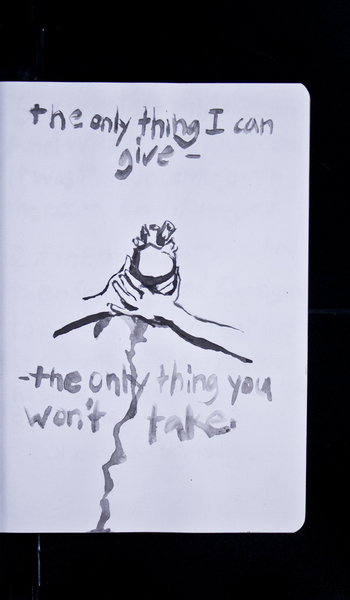 the only thing I can
give -
- the only thing you
won't take.